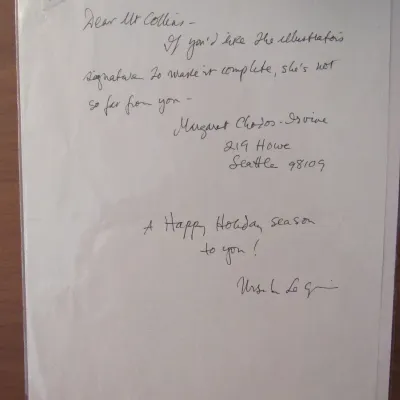 Dear Mr Collins –
If you'd like the illustrator's
signature to make it complete, she's not
so far from you –
Margaret Chodos-Irvine
219 Howe
Seattle 98109
A Happy Holiday season
to you!
Ursula Le Guin